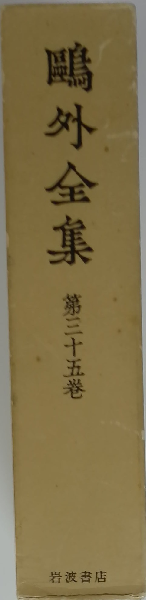 鷗外全集
第三十五巻
岩波書店